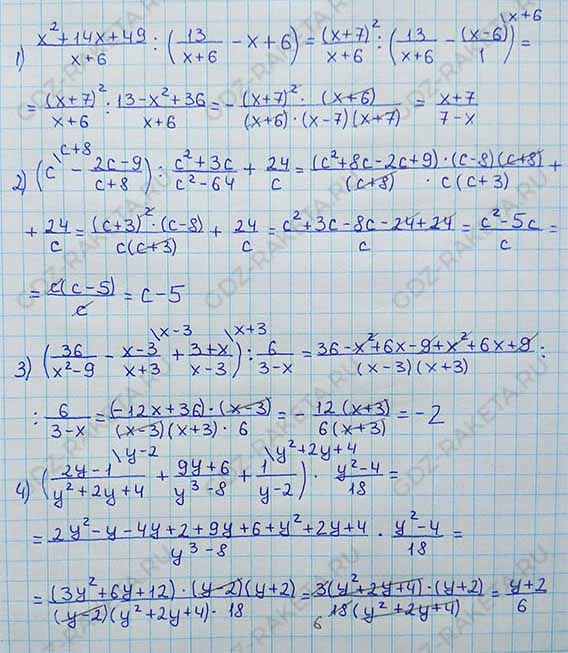 1) (x²+14x+49)/(x+6) : (13/(x+6) - x + 6) = (x+7)²/(x+6) : (13/(x+6) - (x-6)/1 \x+6) =
= (x+7)²/(x+6) : (13-x²+36)/(x+6) = - ((x+7)² · (x+6))/((x+6)·(x-7)(x+7)) = (x+7)/(7-x)
2) (c \c+8 - (2c-9)/(c+8)) : (c²+3c)/(c²-64) + 24/c = ((c²+8c-2c+9)·(c-8)(c+8))/((c+8) · c(c+3)) +
+ 24/c = ((c+3)²·(c-8))/(c(c+3)) + 24/c = (c²+3c-8c-24+24)/c = (c²-5c)/c =
= c(c-5)/c = c-5
3) (36/(x²-9) - (x-3)/(x+3) \x-3 + (3+x)/(x-3) \x+3) : 6/(3-x) = (36-x²+6x-9+x²+6x+9)/((x-3)(x+3)) :
: 6/(3-x) = ((-12x+36)·(x-3))/((x-3)(x+3)·6) = - 12(x+3)/(6(x+3)) = -2
4) ((2y-1)/(y²+2y+4) \y-2 + (9y+6)/(y³-8) + 1/(y-2) \y²+2y+4) · (y²-4)/18 =
= (2y²-y-4y+2+9y+6+y²+2y+4)/(y³-8) · (y²-4)/18 =
= ((3y²+6y+12)·(y-2)(y+2))/((y-2)(y²+2y+4)·18) = (3(y²+2y+4)·(y+2))/(18(y²+2y+4)) = (y+2)/6
6
GDZ-RAKETA.RU